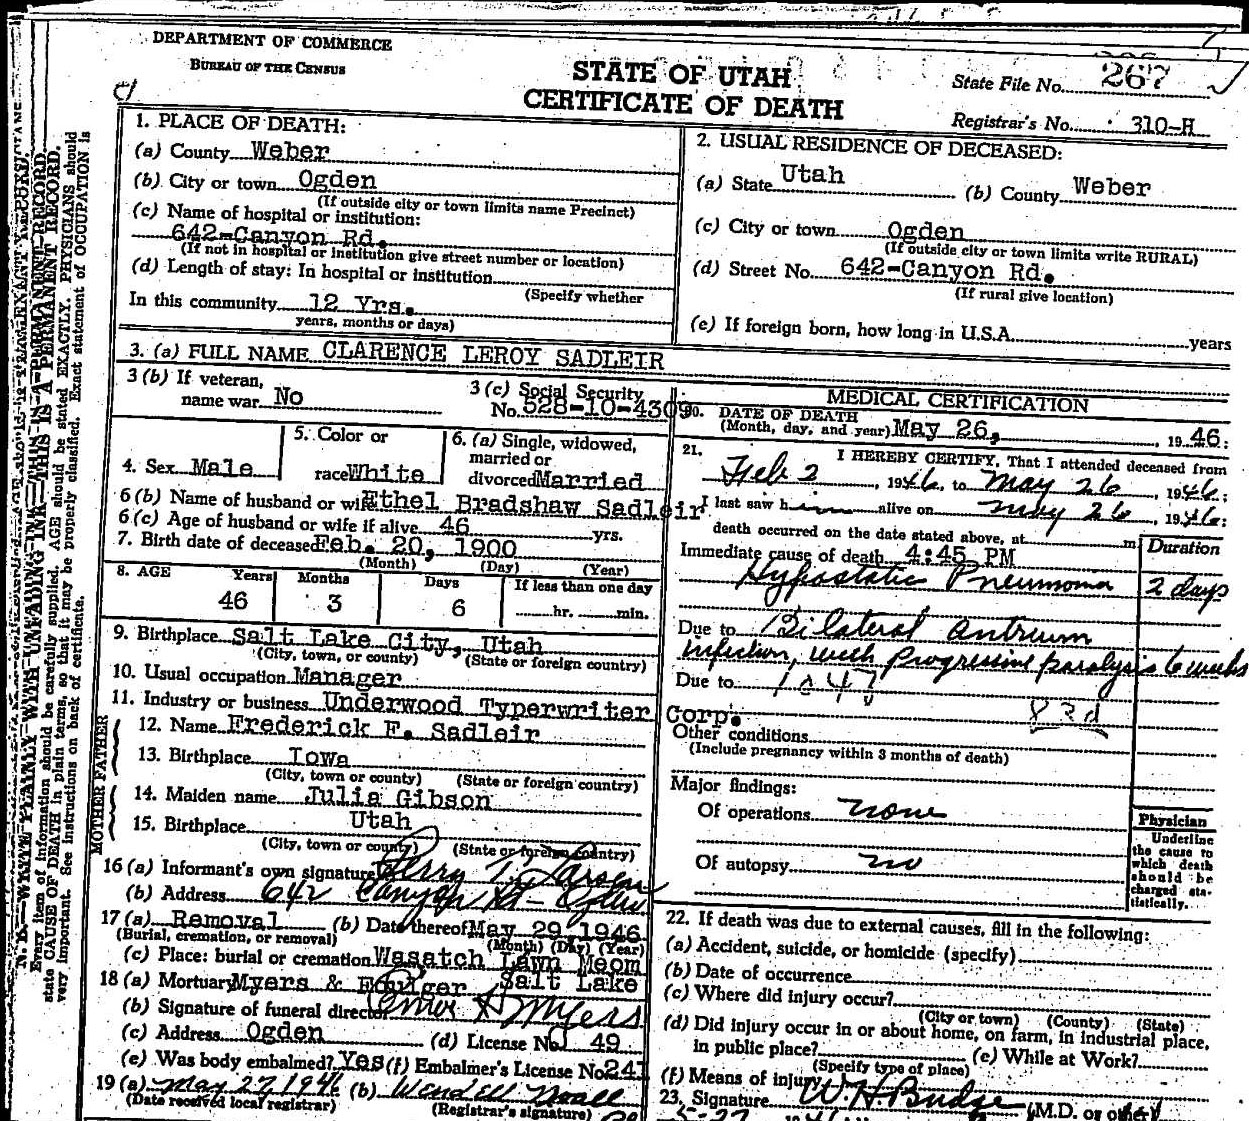 DEPARTMENT OF COMMERCE
BUREAU OF THE CENSUS
STATE OF UTAH
CERTIFICATE OF DEATH
State File No. 267
Registrar's No. 310-H
1. PLACE OF DEATH:
(a) County Weber
(b) City or town Ogden
(If outside city or town limits name Precinct)
(c) Name of hospital or institution:
642-Canyon Rd.
(If not in hospital or institution give street number or location)
(d) Length of stay: In hospital or institution
(Specify whether
In this community 12 Yrs.
years, months or days)
2. USUAL RESIDENCE OF DECEASED:
(a) State Utah (b) County Weber
(c) City or town Ogden
(If outside city or town limits write RURAL)
(d) Street No. 642-Canyon Rd.
(If rural give location)
(e) If foreign born, how long in U.S.A. years
3. (a) FULL NAME CLARENCE LEROY SADLEIR
3 (b) If veteran,
name war No
3 (c) Social Security
No. 528-10-4309
4. Sex Male
5. Color or
race White
6. (a) Single, widowed,
married or
divorced Married
6 (b) Name of husband or wife Ethel Bradshaw Sadleir
6 (c) Age of husband or wife if alive 46 yrs.
7. Birth date of deceased Feb. 20, 1900
(Month) (Day) (Year)
8. AGE Years Months Days If less than one day
46 3 6 hr. min.
9. Birthplace Salt Lake City, Utah
(City, town, or county) (State or foreign country)
10. Usual occupation Manager
11. Industry or business Underwood Typerwriter Corp.
FATHER
12. Name Frederick F. Sadleir
13. Birthplace Iowa
(City, town or county) (State or foreign country)
MOTHER
14. Maiden name Julia Gibson
15. Birthplace Utah
(City, town or county) (State or foreign country)
16 (a) Informant's own signature Perry T. Larsen
(b) Address 642 Canyon Rd - Ogden
17 (a) Removal (b) Date thereof May 29 1946
(Burial, cremation, or removal) (Month) (Day) (Year)
(c) Place: burial or cremation Wasatch Lawn Meom
Salt Lake
18 (a) Mortuary Myers & Foulger
(b) Signature of funeral director Myers
(c) Address Ogden (d) License No. 49
(e) Was body embalmed? Yes (f) Embalmer's License No. 241
19 (a) May 27, 1946 (b) Wendell Noall
(Date received local registrar) (Registrar's signature)
MEDICAL CERTIFICATION
20. DATE OF DEATH
(Month, day, and year) May 26, 1946:
21. I HEREBY CERTIFY, That I attended deceased from
Feb 2, 1946, to May 26, 1946;
I last saw him alive on May 26, 1946;
death occurred on the date stated above, at m.
Immediate cause of death 4:45 PM
Duration
Hypostatic Pneumonia 2 days
Due to Bilateral antrum
infection, with progressive paralysis 6 weeks
Due to
83d
Other conditions
(Include pregnancy within 3 months of death)
Major findings:
Of operations none
Of autopsy no
Physician
Underline
the cause to
which death
should be
charged sta-
tistically.
22. If death was due to external causes, fill in the following:
(a) Accident, suicide, or homicide (specify)
(b) Date of occurrence
(c) Where did injury occur?
(City or town) (County) (State)
(d) Did injury occur in or about home, on farm, in industrial place,
in public place? (e) While at Work?
(Specify type of place)
(f) Means of injury
23. Signature W. H. Budge (M.D. or other)
5-27
N. B.—WRITE PLAINLY WITH UNFADING INK—THIS IS A PERMANENT RECORD.
Every item of information should be carefully supplied. AGE should be stated EXACTLY. PHYSICIANS should
state CAUSE OF DEATH in plain terms, so that it may be properly classified. Exact statement of OCCUPATION is
very important. See instructions on back of certificate.